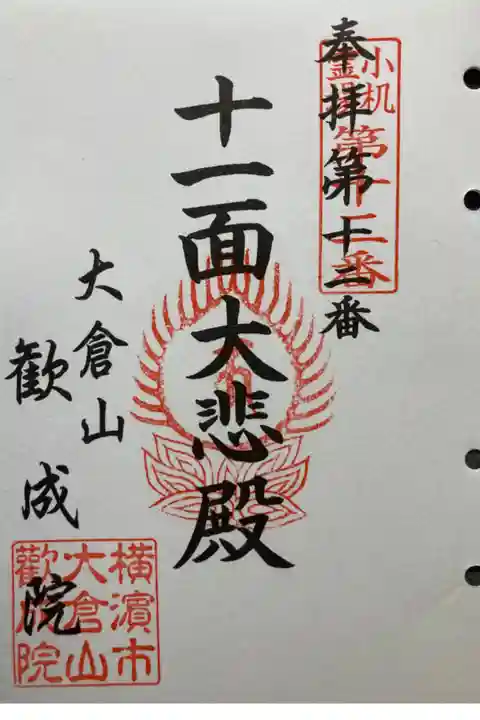 奉拝第十二番
小机
霊場
第十二番
十一面大悲殿
大倉山
歓成院
横濱市
大倉山
歡成院